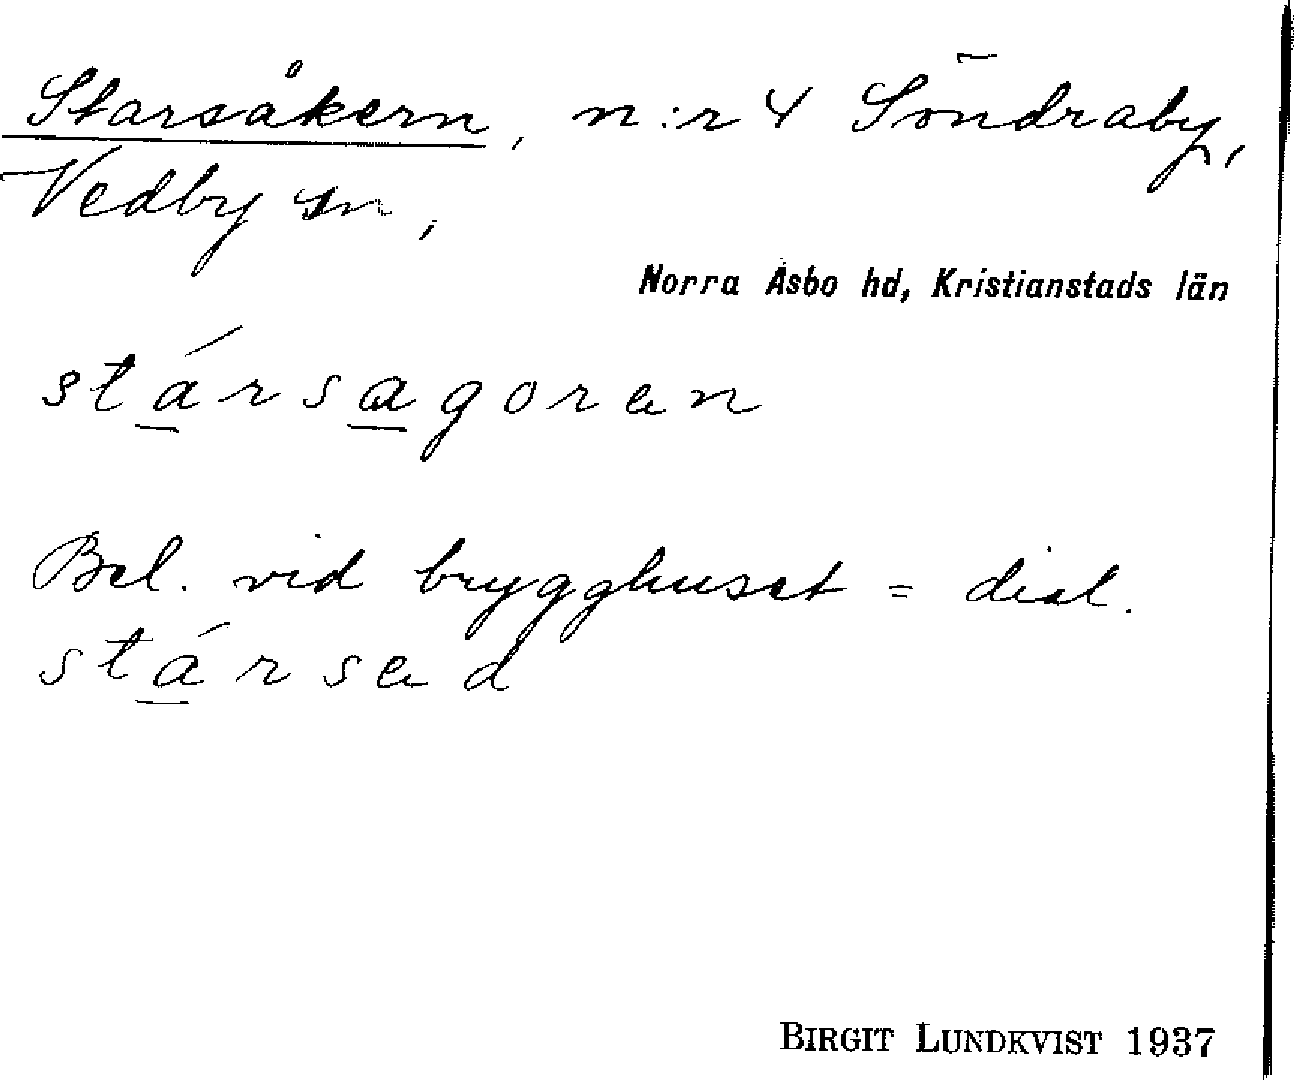 Starsåkern, n:r 4 Söndraby,
Vedby sn,
Norra Åsbo hd, Kristianstads län
stársagoran
Bel. vid brygghuset = dial.
stársad
BIRGIT LUNDKVIST 1937